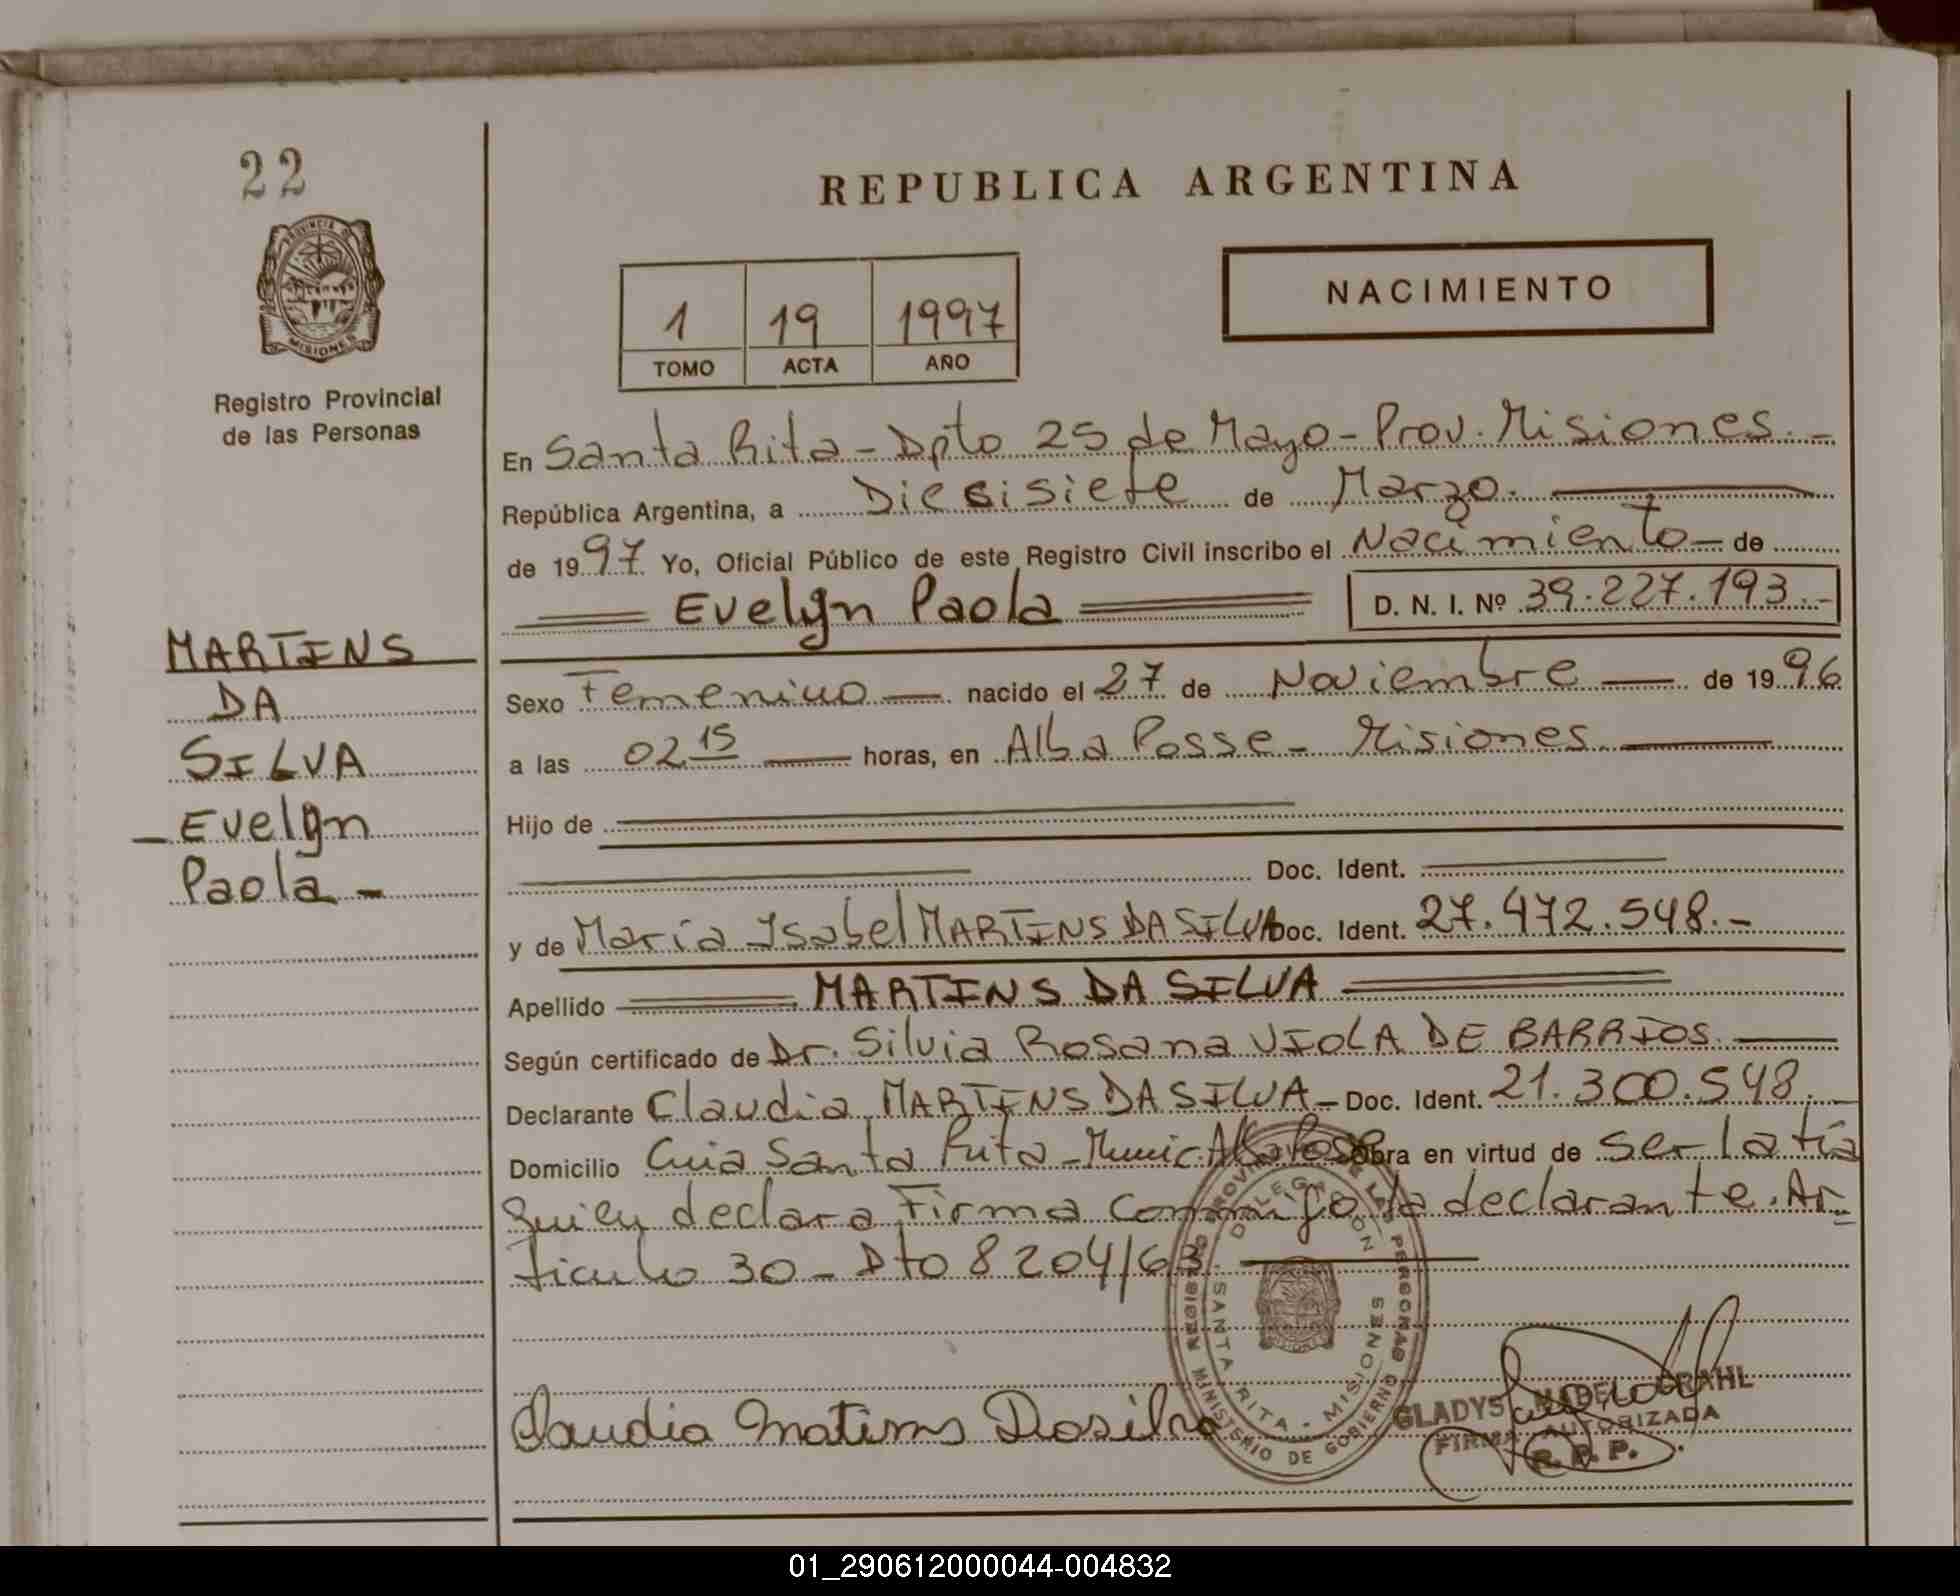 22
REPUBLICA ARGENTINA
PROVINCIA DE
MISIONES
Registro Provincial
de las Personas
1 19 1997
TOMO ACTA AÑO
NACIMIENTO
En Santa Rita - Dpto 25 de Mayo - Prov. Misiones. -
República Argentina, a Diecisiete de Marzo.
de 1997 Yo, Oficial Público de este Registro Civil inscribo el Nacimiento - de
Evelyn Paola D. N. I. Nº 39.227.193.-
MARTINS
DA
SILVA
- Evelyn
Paola -
Sexo Femenino nacido el 27 de Noviembre de 1996
a las 02 15 horas, en Alba Posse - Misiones
Hijo de
Doc. Ident.
y de María Isabel MARTINS DA SILVA Doc. Ident. 27.472.548.-
Apellido MARTINS DA SILVA
Según certificado de Dr. Silvia Rosana VIOLA DE BARRIOS.
Declarante Claudia MARTINS DA SILVA - Doc. Ident. 21.300.548.
Domicilio Cuia Santa Rita - Munic. Alba Posse Obra en virtud de ser la tía
quien declara Firma conmigo la declarante. Ar-
ticulo 30 - Dto 8204/63.
REGISTRO PROVINCIAL DE LAS PERSONAS
DELEGACION
SANTA RITA - MISIONES
MINISTERIO DE GOBIERNO
Claudia Matims Dasilva
GLADYS GRAHL
FIRMA AUTORIZADA
R. P. P.
01_290612000044-004832